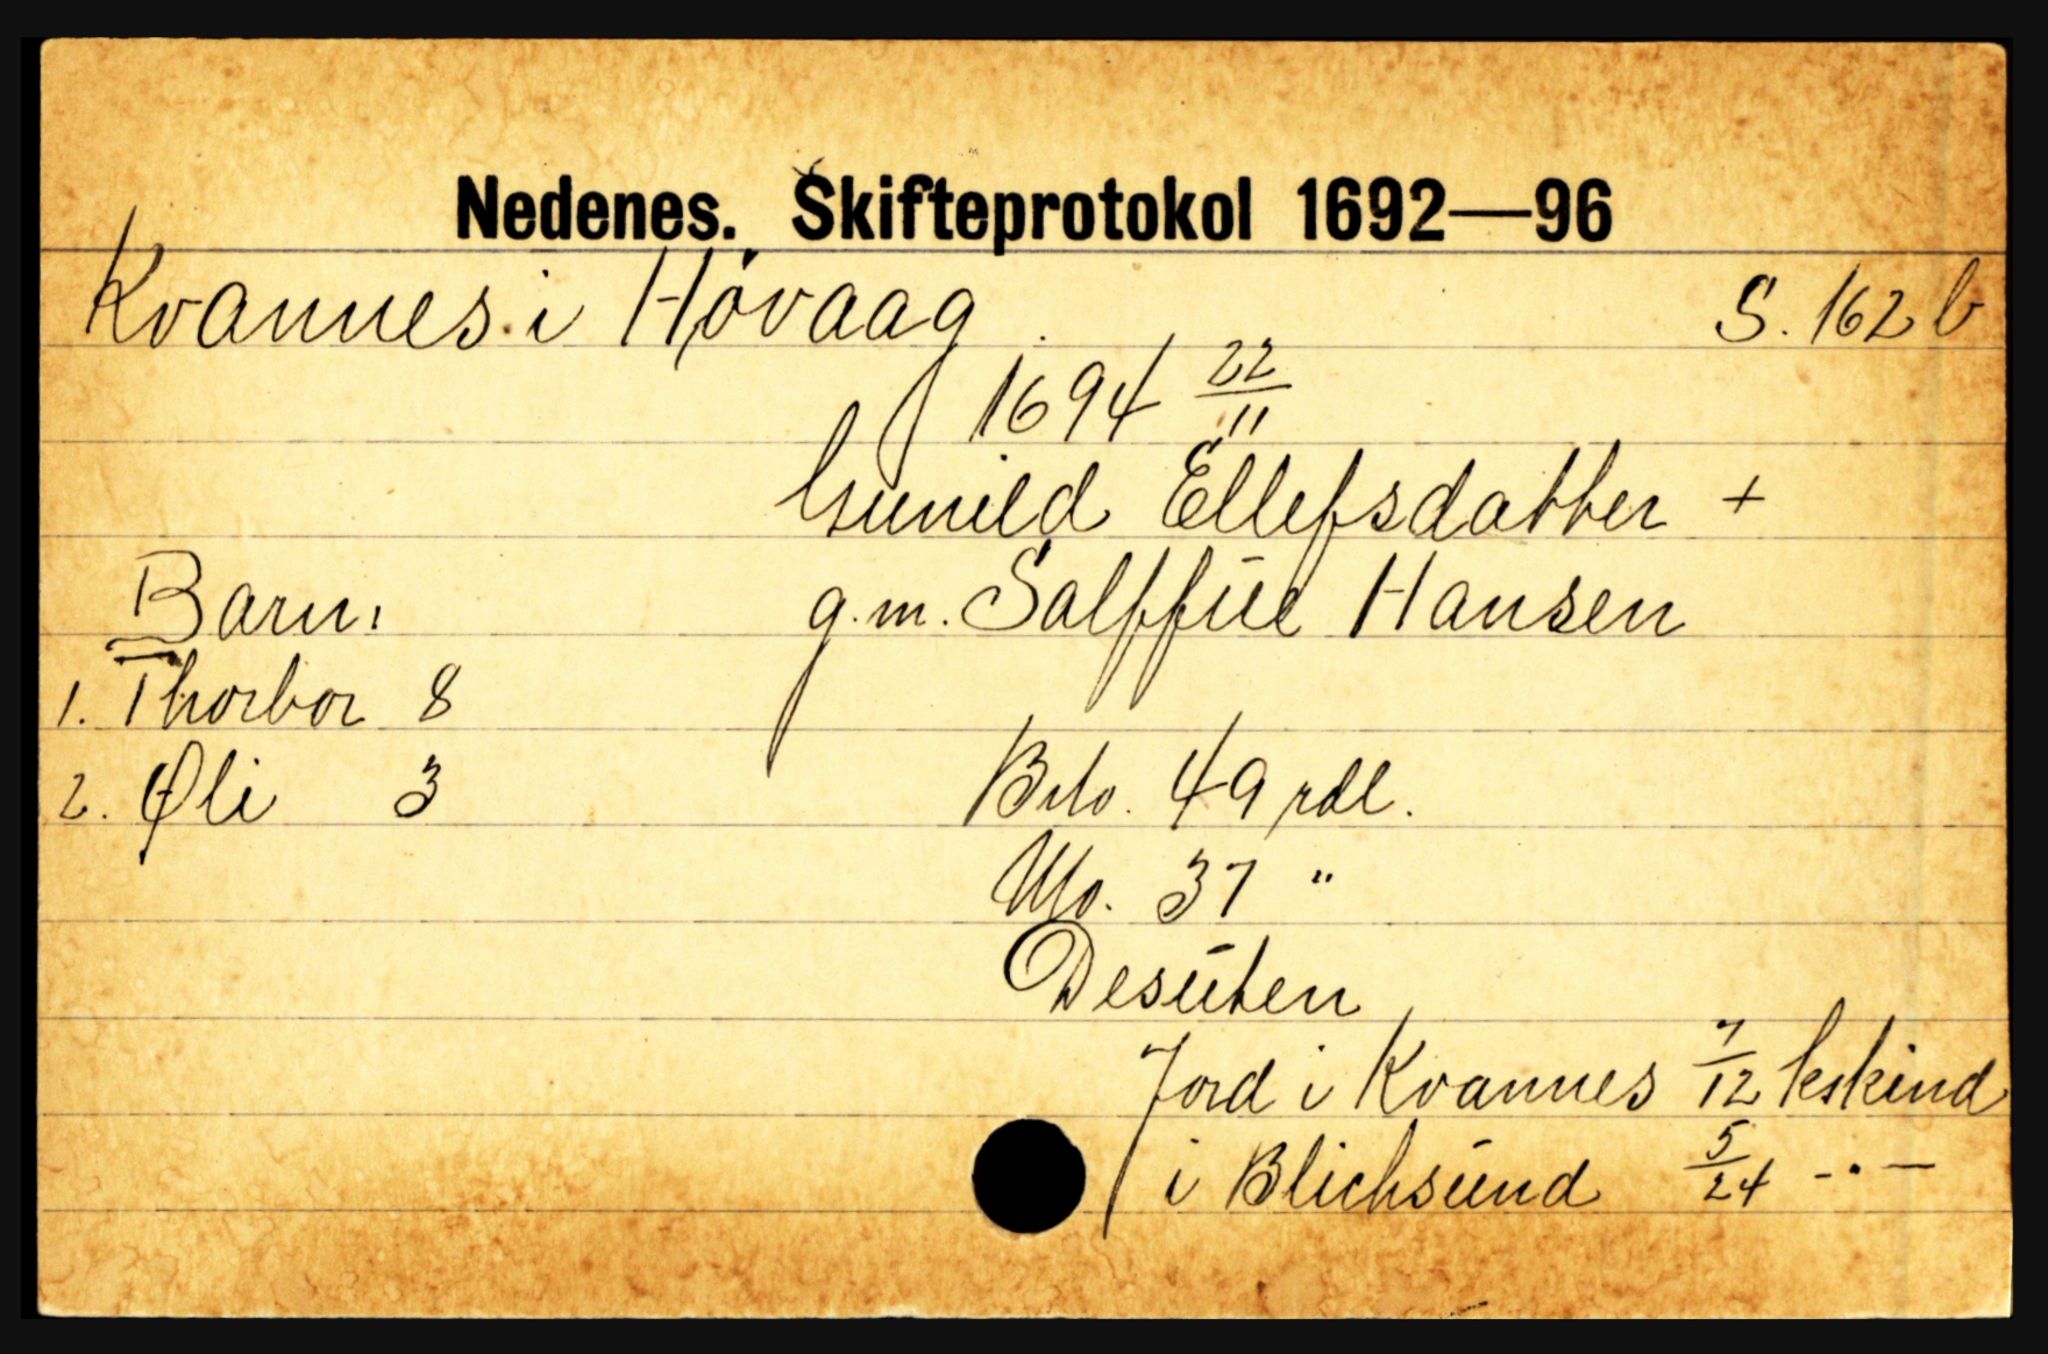 Nedenes. Skifteprotokol 1692—96
Kvannes i Høvaag S. 162 b
1694 22/11
Gunild Ellefsdatter +
g.m. Salffue Hansen
Barn:
1. Thorbor 8
2. Øli 3
Bto. 49 rdl.
No. 37 "
Desuten
Jord i Kvannes 7/12 kskind
i Blichsund 5/24 -·-